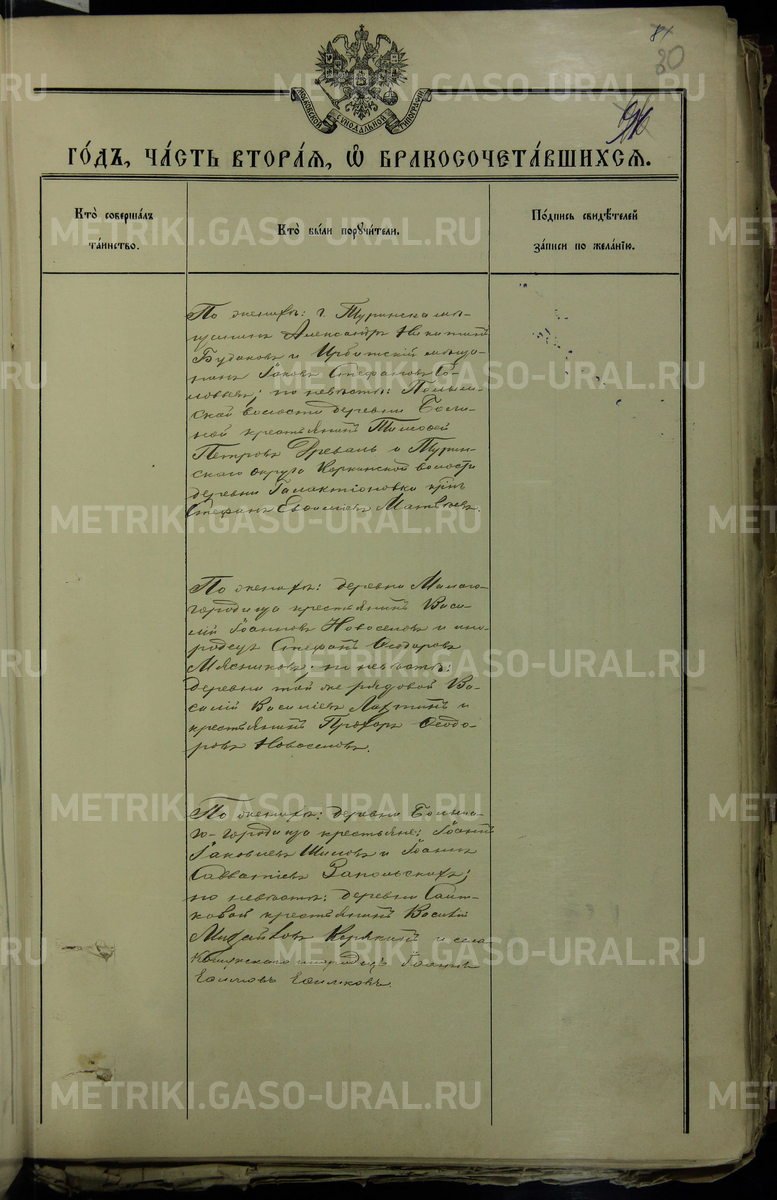 80
МОСКОВСКОЙ СѴНОДАЛЬНОЙ ТИПОГРАФІИ
ГО́ДЪ, ЧА́СТЬ ВТОРА́Я, Ѡ҆ БРАКОСОЧЕТА́ВШИХСЯ.
Кто̀ соверша́лъ
та́инство.
Кто̀ бы́ли порꙋчи́тели.
По́дпись свидѣ́телей
за́писи по жела́нїю.
По женихѣ: г. Туринска мѣ-
щанинъ Александръ Никитинъ
Будаковъ и Ирбитскій мѣща-
нинъ Іаковъ Стефановъ
по невѣстѣ:
ской волости деревни
ной крестьянинъ Тимофей
Петровъ Древаль и Турин-
скаго округа Коркинской волости
деревни Галактіоновки кр-нъ
Стефанъ Евѳиміевъ Матвѣевъ.
По женихѣ: деревни Малаго-
городища крестьянинъ Васи-
лій Іоанновъ Новоселовъ и ино-
родецъ Стефанъ Ѳеодоровъ
Мясниковъ; по невѣстѣ:
деревни той же рядовой Ва-
силій Васильевъ Лахтинъ и
крестьянинъ Прохоръ Ѳеодо-
ровъ Новоселовъ.
По женихѣ: деревни Больша-
го-городища крестьяне: Іоаннъ
Іаковлевъ Шиловъ и Іоаннъ
Савватіевъ Запольскихъ;
по невѣстѣ: деревни Сайт-
ковой крестьянинъ Василій
Михайловъ Корякинъ и села
инородецъ Іоаннъ
Евимовъ
METRIKI.GASO-URAL.RU